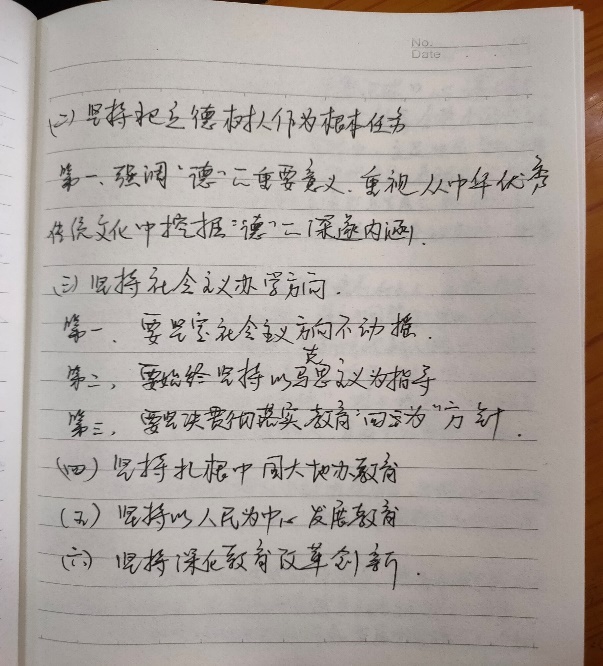 No.
Date
(二)坚持把立德树人作为根本任务
第一、强调“德”之重要意义、重视从中华优秀
传统文化中挖掘“德”之深邃内涵.
(三)坚持社会主义办学方向.
第一、要坚定社会主义方向不动摇.
第二、要始终坚持以马克思主义为指导
第三、要坚决贯彻落实教育“四个为”方针.
(四)坚持扎根中国大地办教育
(五)坚持以人民为中心发展教育
(六)坚持深化教育改革创新.